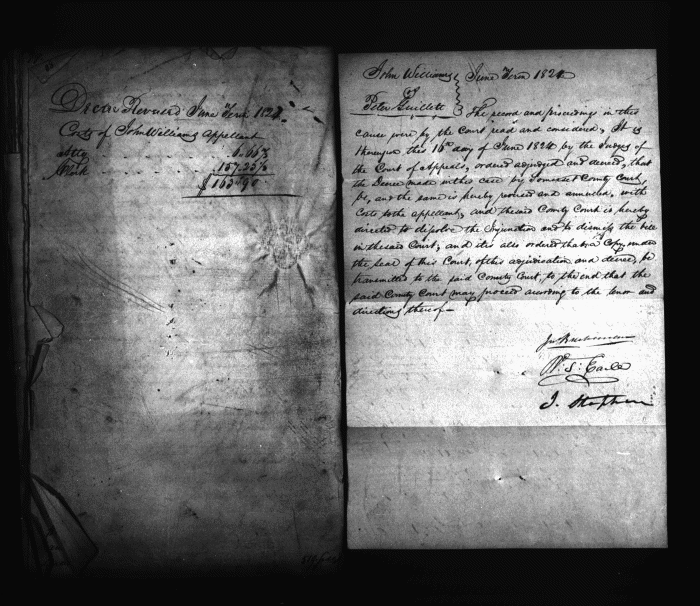 Decree Reversed June Term 182
Costs of John Williams appellant
atty 6.66⅔
Clerk 157.23⅓
$163.90
John Williams
vs
Peter Guillett
June Term 1824
The record and proceedings in this
cause were by the Court read and considered, It is
thereupon this 16th day of June 1824 by the Judges of
the Court of Appeals, ordered adjudged and decreed, that
the Decree made in this case by Somerset County Court,
be, and the same is hereby reversed and annulled, with
Costs to the appellant, and the said County Court is hereby
directed to dissolve the Injunction and to dismiss the bill
in the said Court, and it is also ordered that a Copy under
the seal of this Court, of this adjudication and decree, be
transmitted to the said County Court, to the end that the
said County Court may proceed according to the tenor and
directions thereof—
Jno Buchanan
R: S: Earle
J. Stephen